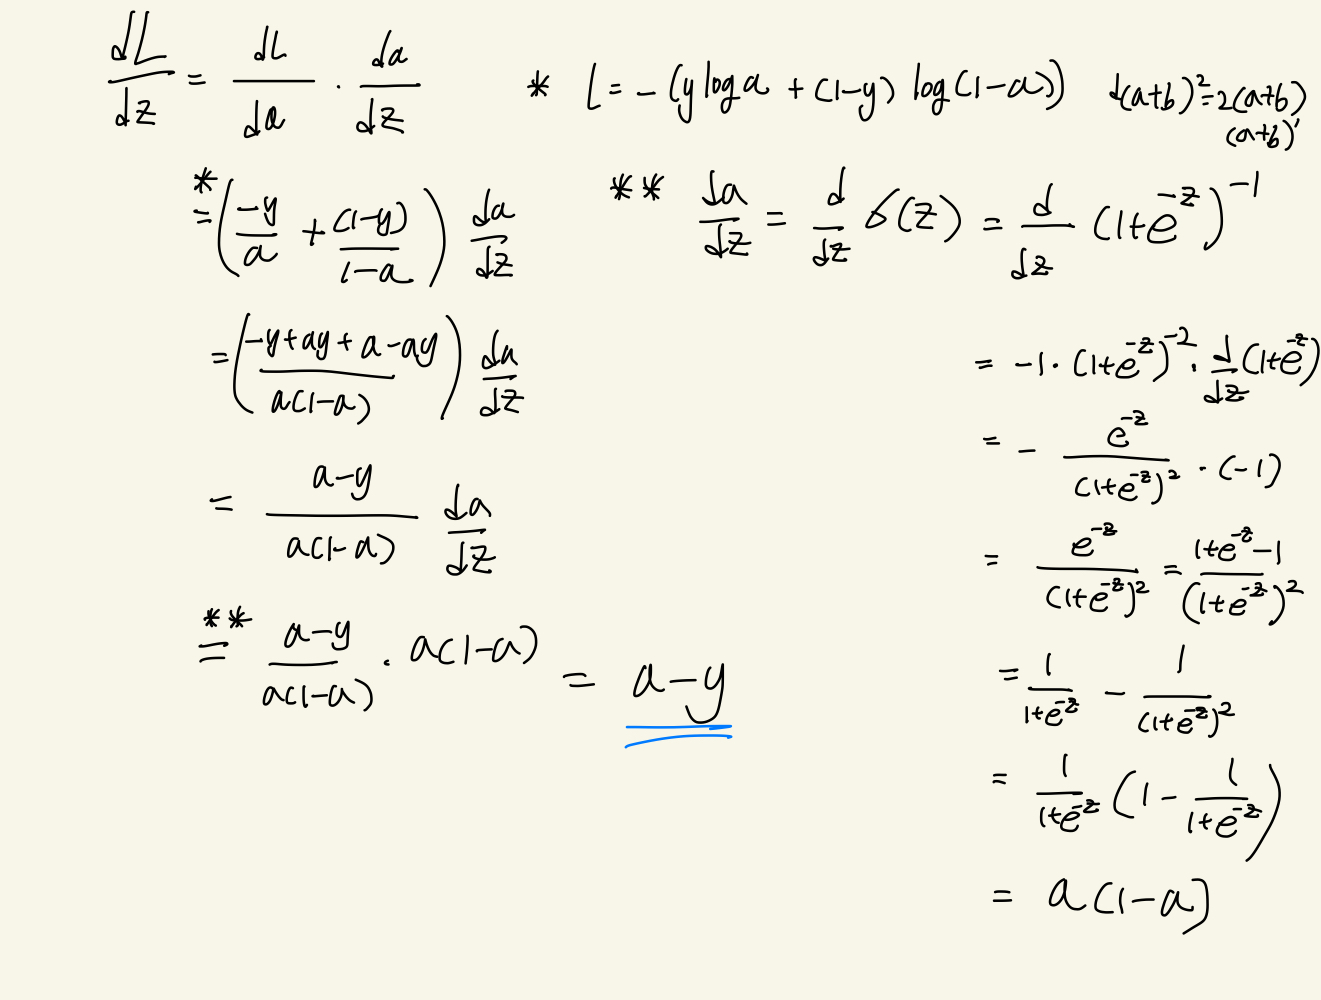 dL/dz = dL/da · da/dz
* L = -(y log a + (1-y) log(1-a))
d(a+b)² = 2(a+b)
(a+b)'
*= (-y/a + (1-y)/1-a) da/dz
= (-y+ay+a-ay/a(1-a)) da/dz
= a-y/a(1-a) da/dz
**= a-y/a(1-a) · a(1-a) = a-y
** da/dz = d/dz σ(z) = d/dz (1+e^-z)^-1
= -1 · (1+e^-z)^-2 · d/dz (1+e^-z)
= - e^-z/(1+e^-z)² · (-1)
= e^-z/(1+e^-z)² = 1+e^-z-1/(1+e^-z)²
= 1/1+e^-z - 1/(1+e^-z)²
= 1/1+e^-z (1 - 1/1+e^-z)
= a(1-a)